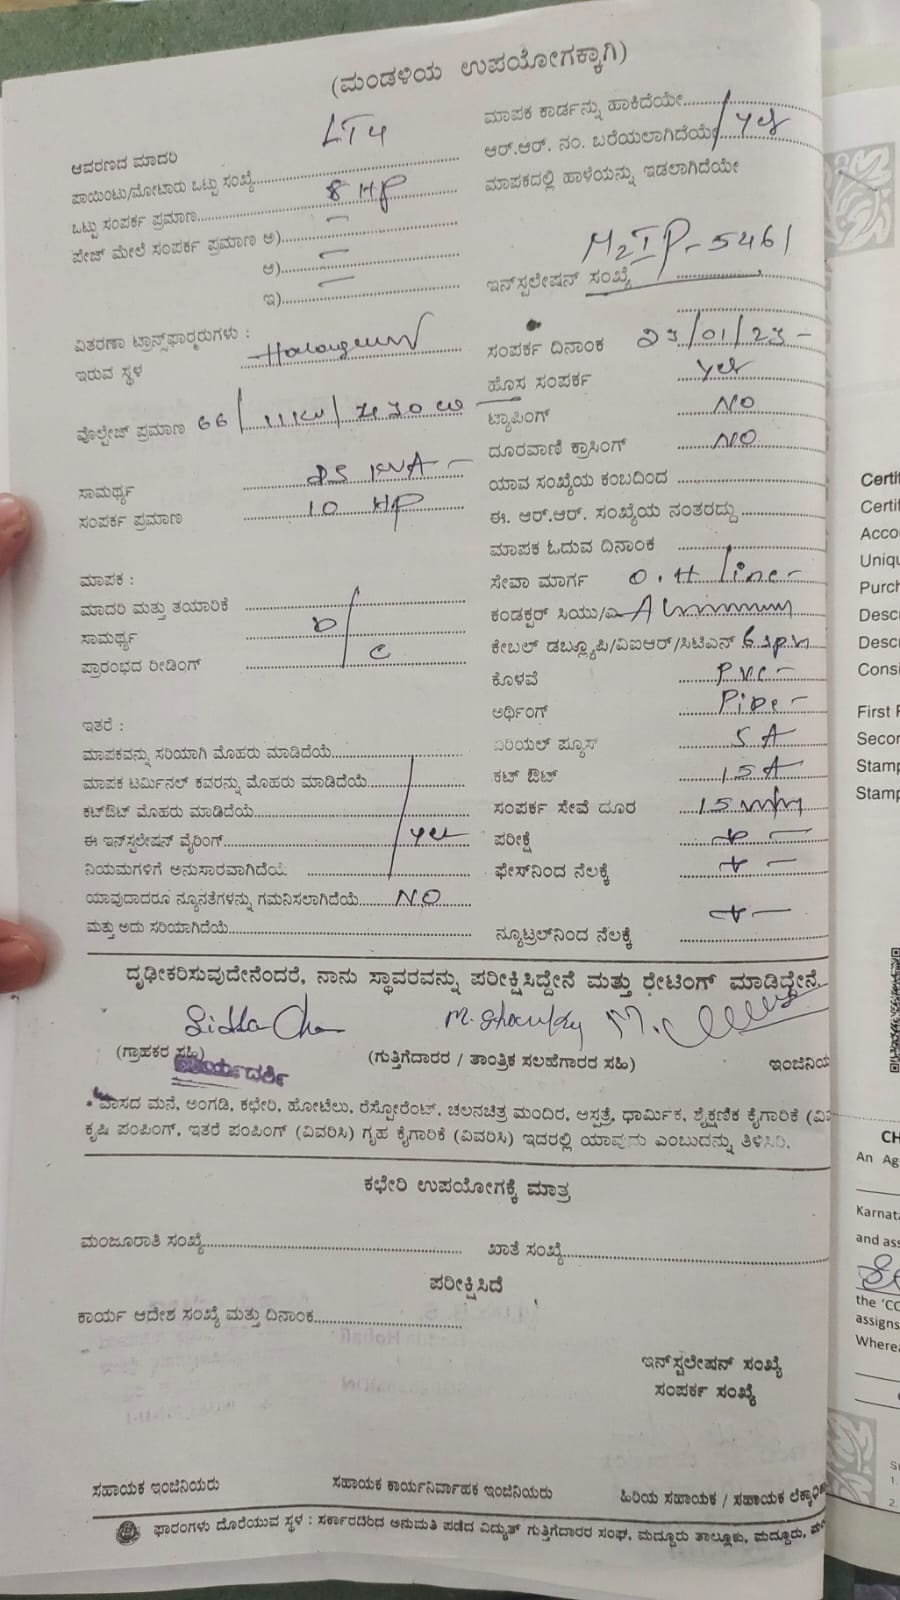 (ಮಂಡಳಿಯ ಉಪಯೋಗಕ್ಕಾಗಿ)
ಆವರಣದ ಮಾದರಿ LT4
ಪಾಯಿಂಟು/ಮೋಟಾರು ಒಟ್ಟು ಸಂಖ್ಯೆ
ಒಟ್ಟು ಸಂಪರ್ಕ ಪ್ರಮಾಣ 8 HP
ಪೇಜ್ ಮೇಲೆ ಸಂಪರ್ಕ ಪ್ರಮಾಣ ಅ) –
ಆ) –
ಇ) –
ವಿತರಣಾ ಟ್ರಾನ್ಸ್‌ಫಾರ್ಮರುಗಳು :
ಇರುವ ಸ್ಥಳ
ವೋಲ್ಟೇಜ್ ಪ್ರಮಾಣ 66/11KV/
ಸಾಮರ್ಥ್ಯ 25 KVA –
ಸಂಪರ್ಕ ಪ್ರಮಾಣ 10 HP
ಮಾಪಕ :
ಮಾದರಿ ಮತ್ತು ತಯಾರಿಕೆ
ಸಾಮರ್ಥ್ಯ D /
ಪ್ರಾರಂಭದ ರೀಡಿಂಗ್ C
ಇತರೆ :
ಮಾಪಕವನ್ನು ಸರಿಯಾಗಿ ಮೊಹರು ಮಾಡಿದೆಯೆ
ಮಾಪಕ ಟರ್ಮಿನಲ್ ಕವರನ್ನು ಮೊಹರು ಮಾಡಿದೆಯೆ
ಕಟ್‌ಔಟ್ ಮೊಹರು ಮಾಡಿದೆಯೆ
ಈ ಇನ್‌ಸ್ಟಲೇಷನ್ ವೈರಿಂಗ್ yes
ನಿಯಮಗಳಿಗೆ ಅನುಸಾರವಾಗಿದೆಯೆ
ಯಾವುದಾದರೂ ನ್ಯೂನತೆಗಳನ್ನು ಗಮನಿಸಲಾಗಿದೆಯೆ NO
ಮತ್ತು ಅದು ಸರಿಯಾಗಿದೆಯೆ
ಮಾಪಕ ಕಾರ್ಡನ್ನು ಹಾಕಿದೆಯೇ
ಆರ್.ಆರ್. ನಂ. ಬರೆಯಲಾಗಿದೆಯೇ yes
ಮಾಪಕದಲ್ಲಿ ಹಾಳೆಯನ್ನು ಇಡಲಾಗಿದೆಯೇ
M2IP-5461
ಇನ್‌ಸ್ಪಲೇಷನ್ ಸಂಖ್ಯೆ
ಸಂಪರ್ಕ ದಿನಾಂಕ 23/01/23 –
ಹೊಸ ಸಂಪರ್ಕ yes
ಟ್ಯಾಪಿಂಗ್ NO
ದೂರವಾಣಿ ಕ್ರಾಸಿಂಗ್ NO
ಯಾವ ಸಂಖ್ಯೆಯ ಕಂಬದಿಂದ
ಈ. ಆರ್.ಆರ್. ಸಂಖ್ಯೆಯ ನಂತರದ್ದು
ಮಾಪಕ ಓದುವ ದಿನಾಂಕ
ಸೇವಾ ಮಾರ್ಗ O.H line –
ಕಂಡಕ್ಟರ್ ಸಿಯು/ಎ
ಕೇಬಲ್ ಡಬ್ಲ್ಯೂಪಿ/ವಿಐಆರ್/ಸಿಟಿಎಸ್
ಕೊಳವೆ PVC –
ಅರ್ಥಿಂಗ್ Pipe –
ಏರಿಯಲ್ ಫ್ಯೂಸ್ 5A
ಕಟ್ ಔಟ್ 15A
ಸಂಪರ್ಕ ಸೇವೆ ದೂರ
ಪರೀಕ್ಷೆ
ಫೇಸ್‌ನಿಂದ ನೆಲಕ್ಕೆ
ನ್ಯೂಟ್ರಲ್‌ನಿಂದ ನೆಲಕ್ಕೆ
ದೃಢೀಕರಿಸುವುದೇನೆಂದರೆ, ನಾನು ಸ್ಥಾವರವನ್ನು ಪರೀಕ್ಷಿಸಿದ್ದೇನೆ ಮತ್ತು ರೇಟಿಂಗ್ ಮಾಡಿದ್ದೇನೆ.
(ಗ್ರಾಹಕರ ಸಹಿ) (ಗುತ್ತಿಗೆದಾರರ / ತಾಂತ್ರಿಕ ಸಲಹೆಗಾರರ ಸಹಿ) ಇಂಜಿನಿಯ
ಕಾರ್ಯದರ್ಶಿ
* ವಾಸದ ಮನೆ, ಅಂಗಡಿ, ಕಛೇರಿ, ಹೋಟೆಲು, ರೆಸ್ಟೋರೆಂಟ್, ಚಲನಚಿತ್ರ ಮಂದಿರ, ಆಸ್ಪತ್ರೆ, ಧಾರ್ಮಿಕ, ಶೈಕ್ಷಣಿಕ ಕೈಗಾರಿಕೆ (ವಿ
ಕೃಷಿ ಪಂಪಿಂಗ್, ಇತರೆ ಪಂಪಿಂಗ್ (ವಿವರಿಸಿ) ಗೃಹ ಕೈಗಾರಿಕೆ (ವಿವರಿಸಿ) ಇದರಲ್ಲಿ ಯಾವುದು ಎಂಬುದನ್ನು ತಿಳಿಸಿರಿ.
ಕಛೇರಿ ಉಪಯೋಗಕ್ಕೆ ಮಾತ್ರ
ಮಂಜೂರಾತಿ ಸಂಖ್ಯೆ ಖಾತೆ ಸಂಖ್ಯೆ
ಪರೀಕ್ಷಿಸಿದೆ
ಕಾರ್ಯ ಆದೇಶ ಸಂಖ್ಯೆ ಮತ್ತು ದಿನಾಂಕ
ಇನ್‌ಸ್ಪಲೇಷನ್ ಸಂಖ್ಯೆ
ಸಂಪರ್ಕ ಸಂಖ್ಯೆ
ಸಹಾಯಕ ಇಂಜಿನಿಯರು ಸಹಾಯಕ ಕಾರ್ಯನಿರ್ವಾಹಕ ಇಂಜಿನಿಯರು ಹಿರಿಯ ಸಹಾಯಕ / ಸಹಾಯಕ ಲೆಕ್ಕಾಧಿಕ
ಫಾರಂಗಳು ದೊರೆಯುವ ಸ್ಥಳ : ಸರ್ಕಾರದಿಂದ ಅನುಮತಿ ಪಡೆದ ವಿದ್ಯುತ್ ಗುತ್ತಿಗೆದಾರರ ಸಂಘ, ಮದ್ದೂರು ತಾಲ್ಲೂಕು, ಮದ್ದೂರು,
Certif
Certif
Acco
Uniqu
Purch
Descr
Descr
Consi
First P
Secor
Stamp
Stamp
CH
An Ag
Karnata
and ass
the 'CO
assigns
Wherea